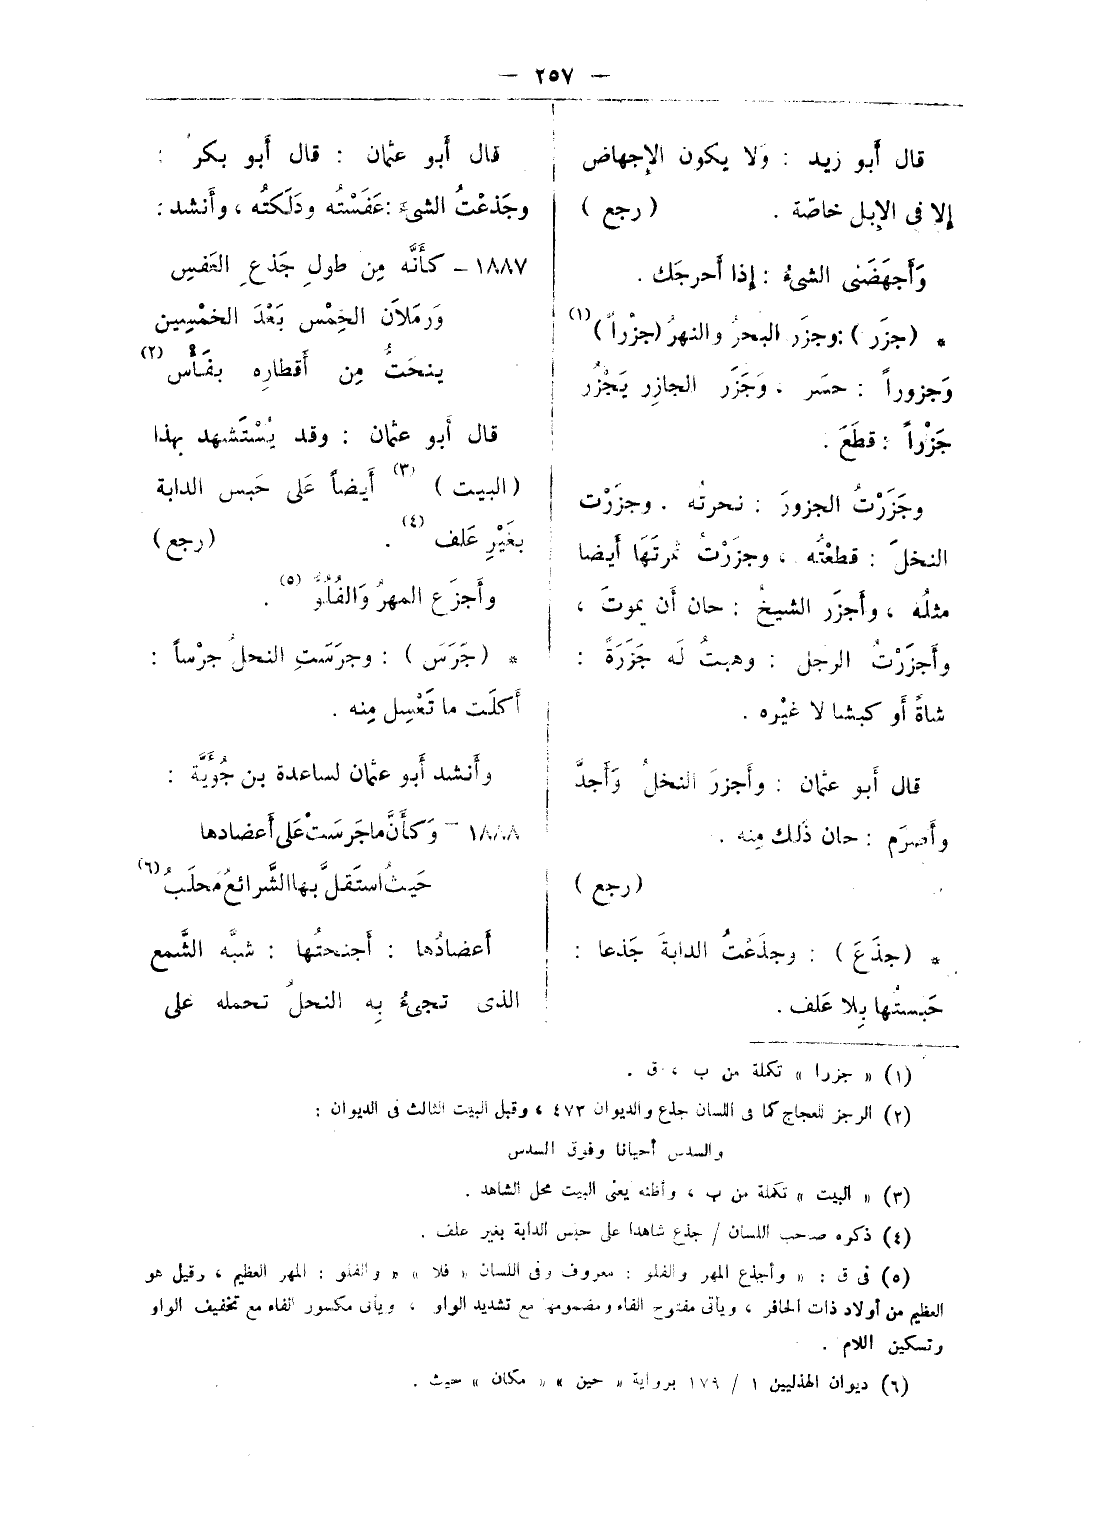 — ٢٥٧ —
قال أَبو زيد : وَلا يكون الإِجهاض
إِلا فى الإِبل خاصّة . ( رجع )
وَأَجهَضَنى الشىءُ : إِذا أَحرجَك .
* ( جزَر ) : وجزَر البحرُ والنهرُ (جزْراً )(١)
وَجزوراً : حسَر ، وَجَزَر الجازِر يَجْزُر
جَزْراً : قطَعَ .
وجَزَرْتُ الجزورَ : نحرتُه . وجزَرْت
النخلَ : قطعْتُه ، وجزَرْتُ ثمرتَهَا أَيضا
مثلُه ، وأَجزَر الشيخُ : حان أَن يموتَ ،
وأَجزَرْتُ الرجل : وهبتُ لَه جَزَرَةً :
شاةً أَو كبشا لا غيْره .
قال أَبو عثمان : وأَجزرَ النخلُ وَأَجدَّ
وأَصرَم : حان ذَلك مِنه .
( رجع )
* ( جذَعَ ) : وجذَعْتُ الدابةَ جَذعا :
حَبستُها بِلا عَلف .
قال أَبو عثمان : قال أَبو بكر :
وجَذعْتُ الشىءَ : عَفَسْتُه ودَلَكتُه ، وأَنشد :
١٨٨٧ – كأَنَّه مِن طولِ جَذعِ العَفسِ
وَرَملَان الخِمْس بَعْدَ الخمْسِين
ينحَتُ مِن أَقطارِه بفَأْس (٢)
قال أَبو عثمان : وقد يُسْتَشهد بهذا
( البيت ) (٣) أَيضاً عَلى حَبس الدابة
بغَيْرِ عَلف (٤) . (رجع )
وأَجزَع المهرُ وَالفُلُوُّ (٥) .
* ( جَرَسَ ) : وجرَسَتِ النحلُ جرْساً :
أَكلَت ما تَعْسِل مِنه .
وأَنشد أَبو عثمان لساعدة بن جُوَيَّة :
١٨٨٨ – وَكأَنَّ ما جَرسَتْ عَلى أَعضادها
حَيثُ استَقلَّ بها الشَّرائعُ مَحلَبُ (٦)
أَعضادُها : أَجنحتُها : شبَّه الشَّمع
الذى تجىءُ بِه النحلُ تحمله على
(١) « جزرا » تكملة من ب ، ق .
(٢) الرجز للعجاج كما فى اللسان جذع والديوان ٤٧٣ ، وقبل البيت الثالث فى الديوان :
والسدس أحيانا وفوق السدس
(٣) « البيت » تكملة من ب ، وأظنه يعنى البيت محل الشاهد .
(٤) ذكره صاحب اللسان / جذع شاهدا على حبس الدابة بغير علف .
(٥) فى ق : « وأجذع المهر والفلو : معروف وفى اللسان « فلا » « والفلو : المهر العظيم ، وقيل هو
العظيم من أولاد ذات الحافر ، ويأتى مفتوح الفاء ومضمومها مع تشديد الواو ، ويأتى مكسور الفاء مع تخفيف الواو
وتسكين اللام .
(٦) ديوان الهذليين ١ / ١٧٩ برواية « حين » « مكان » حيث .